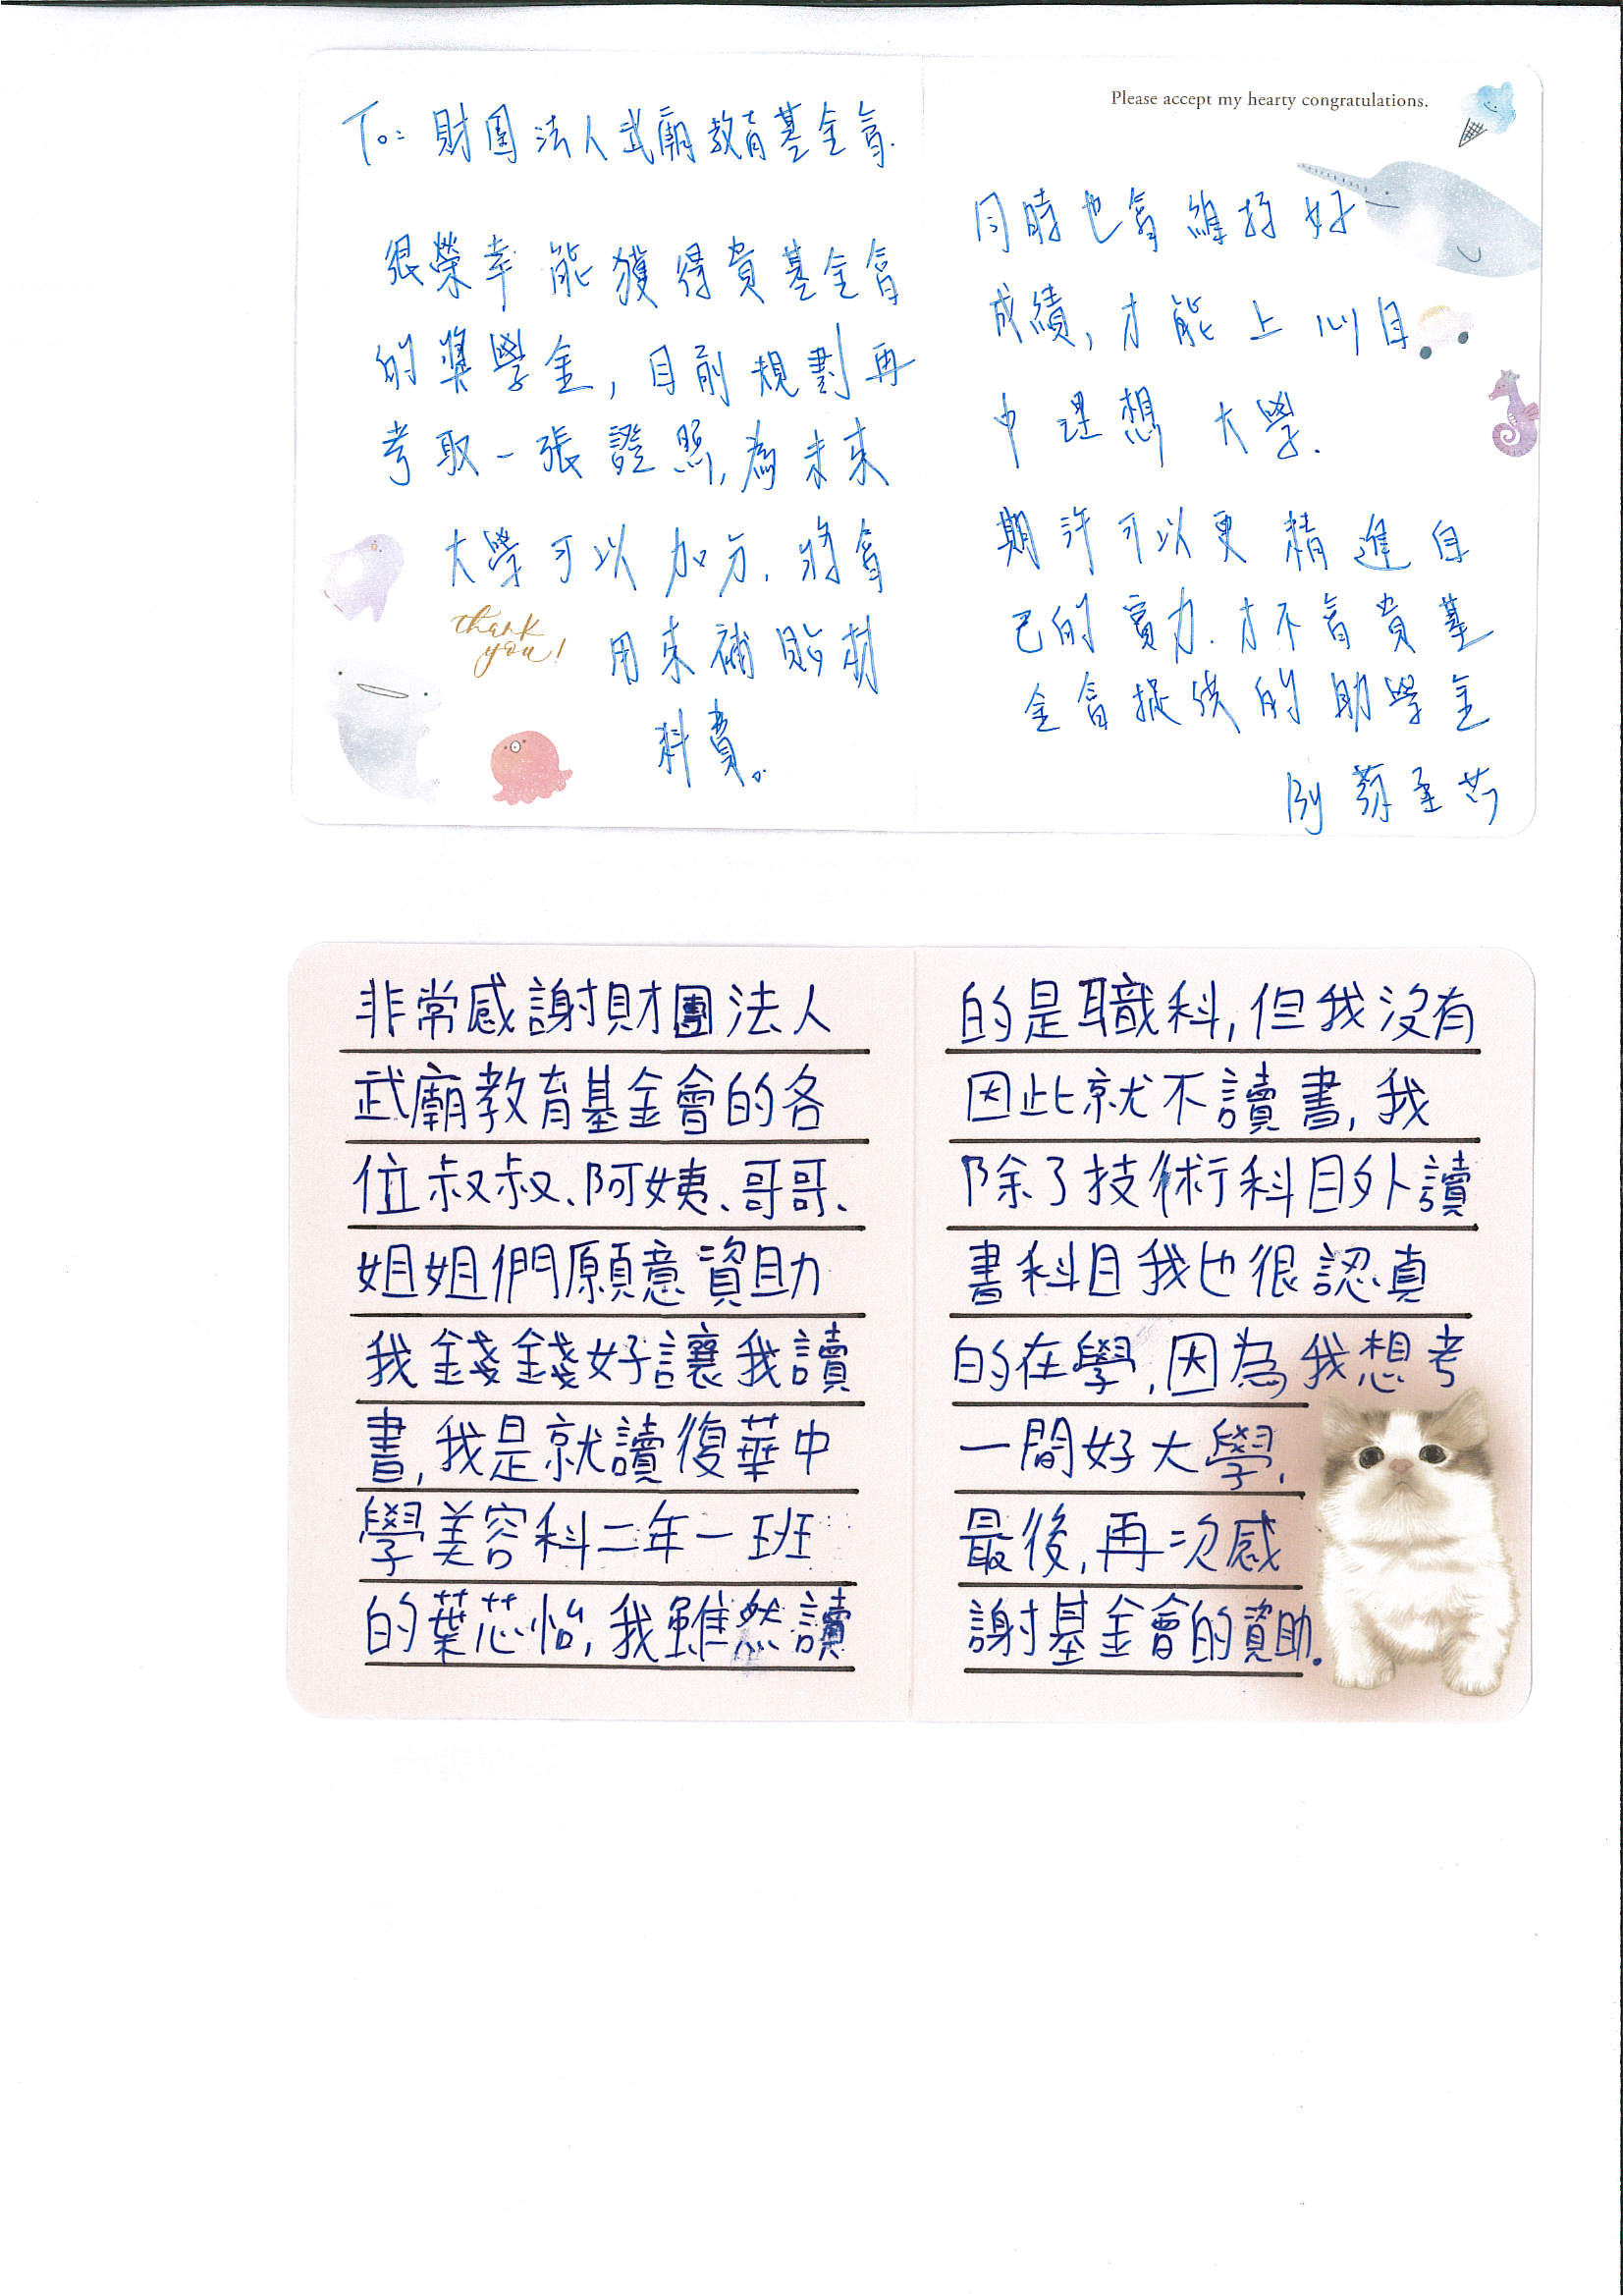 To: 財團法人武廟教育基金會.
很榮幸能獲得貴基金會
的獎學金，目前規劃再
考取一張證照，為未來
大學可以加分. 將會
用來補貼材
料費。
thank
you!
Please accept my hearty congratulations.
同時也會維持好
成績，才能上心目
中理想大學.
期許可以更精進自
己的實力. 才不負貴基
金會提供的助學金
By
非常感謝財團法人
武廟教育基金會的各
位叔叔、阿姨、哥哥、
姐姐們願意資助
我錢錢好讓我讀
書,我是就讀復華中
學美容科二年一班
的葉芯怡,我雖然讀
的是職科,但我沒有
因此就不讀書,我
除了技術科目外讀
書科目我也很認真
的在學,因為我想考
一間好大學.
最後,再次感
謝基金會的資助.